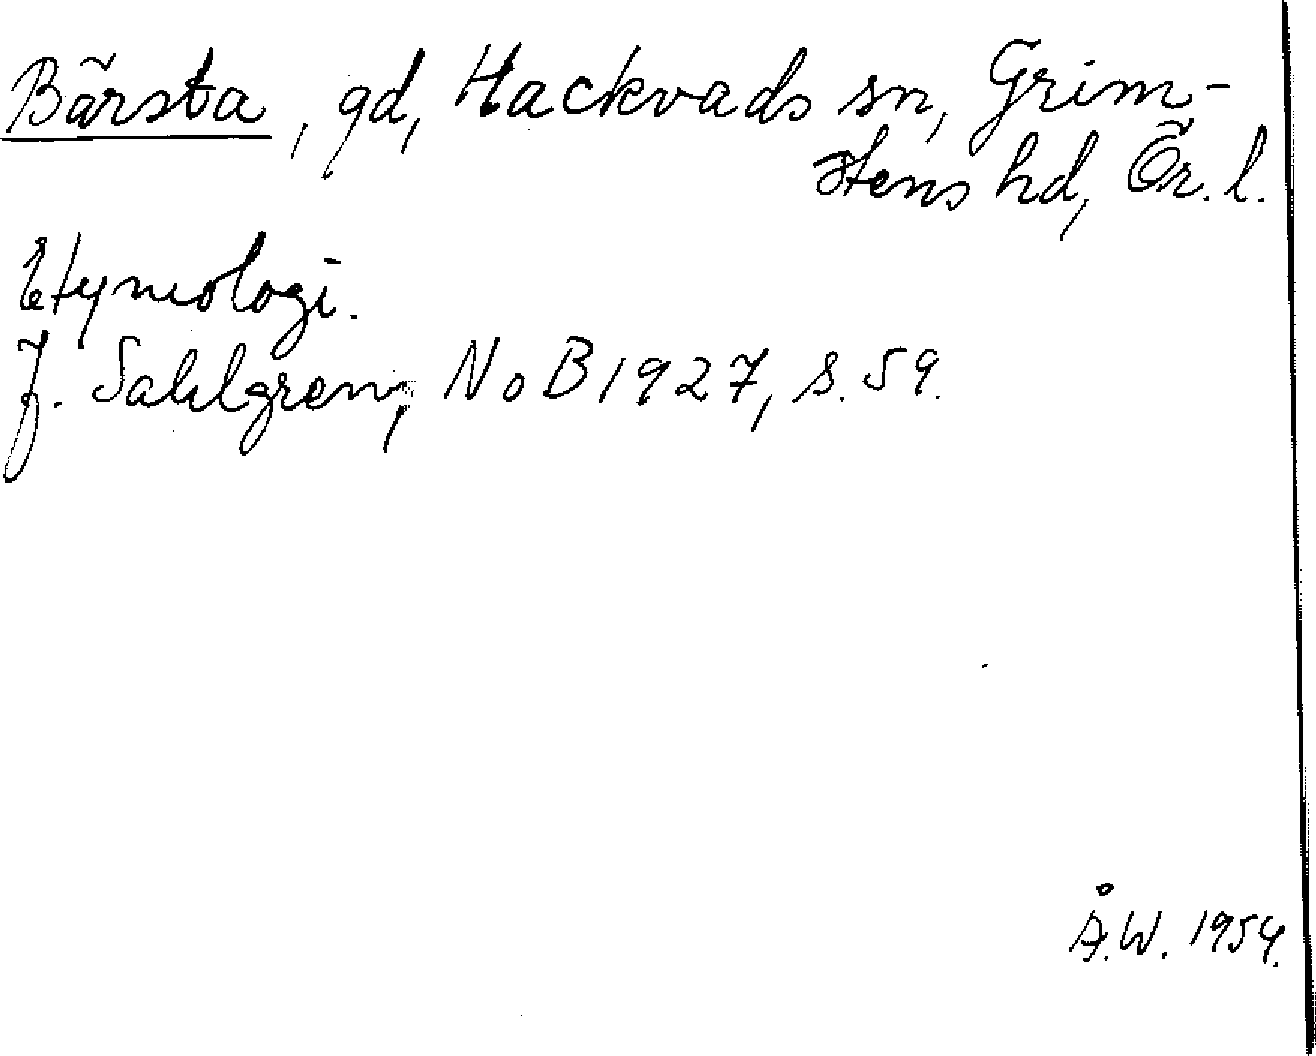 Bärsta, gd, Hackvads sn, Grim-
stens hd, Ör. l.
Etymologi.
J. Sahlgren, NoB 1927, s. 59.
Å.W. 1954.